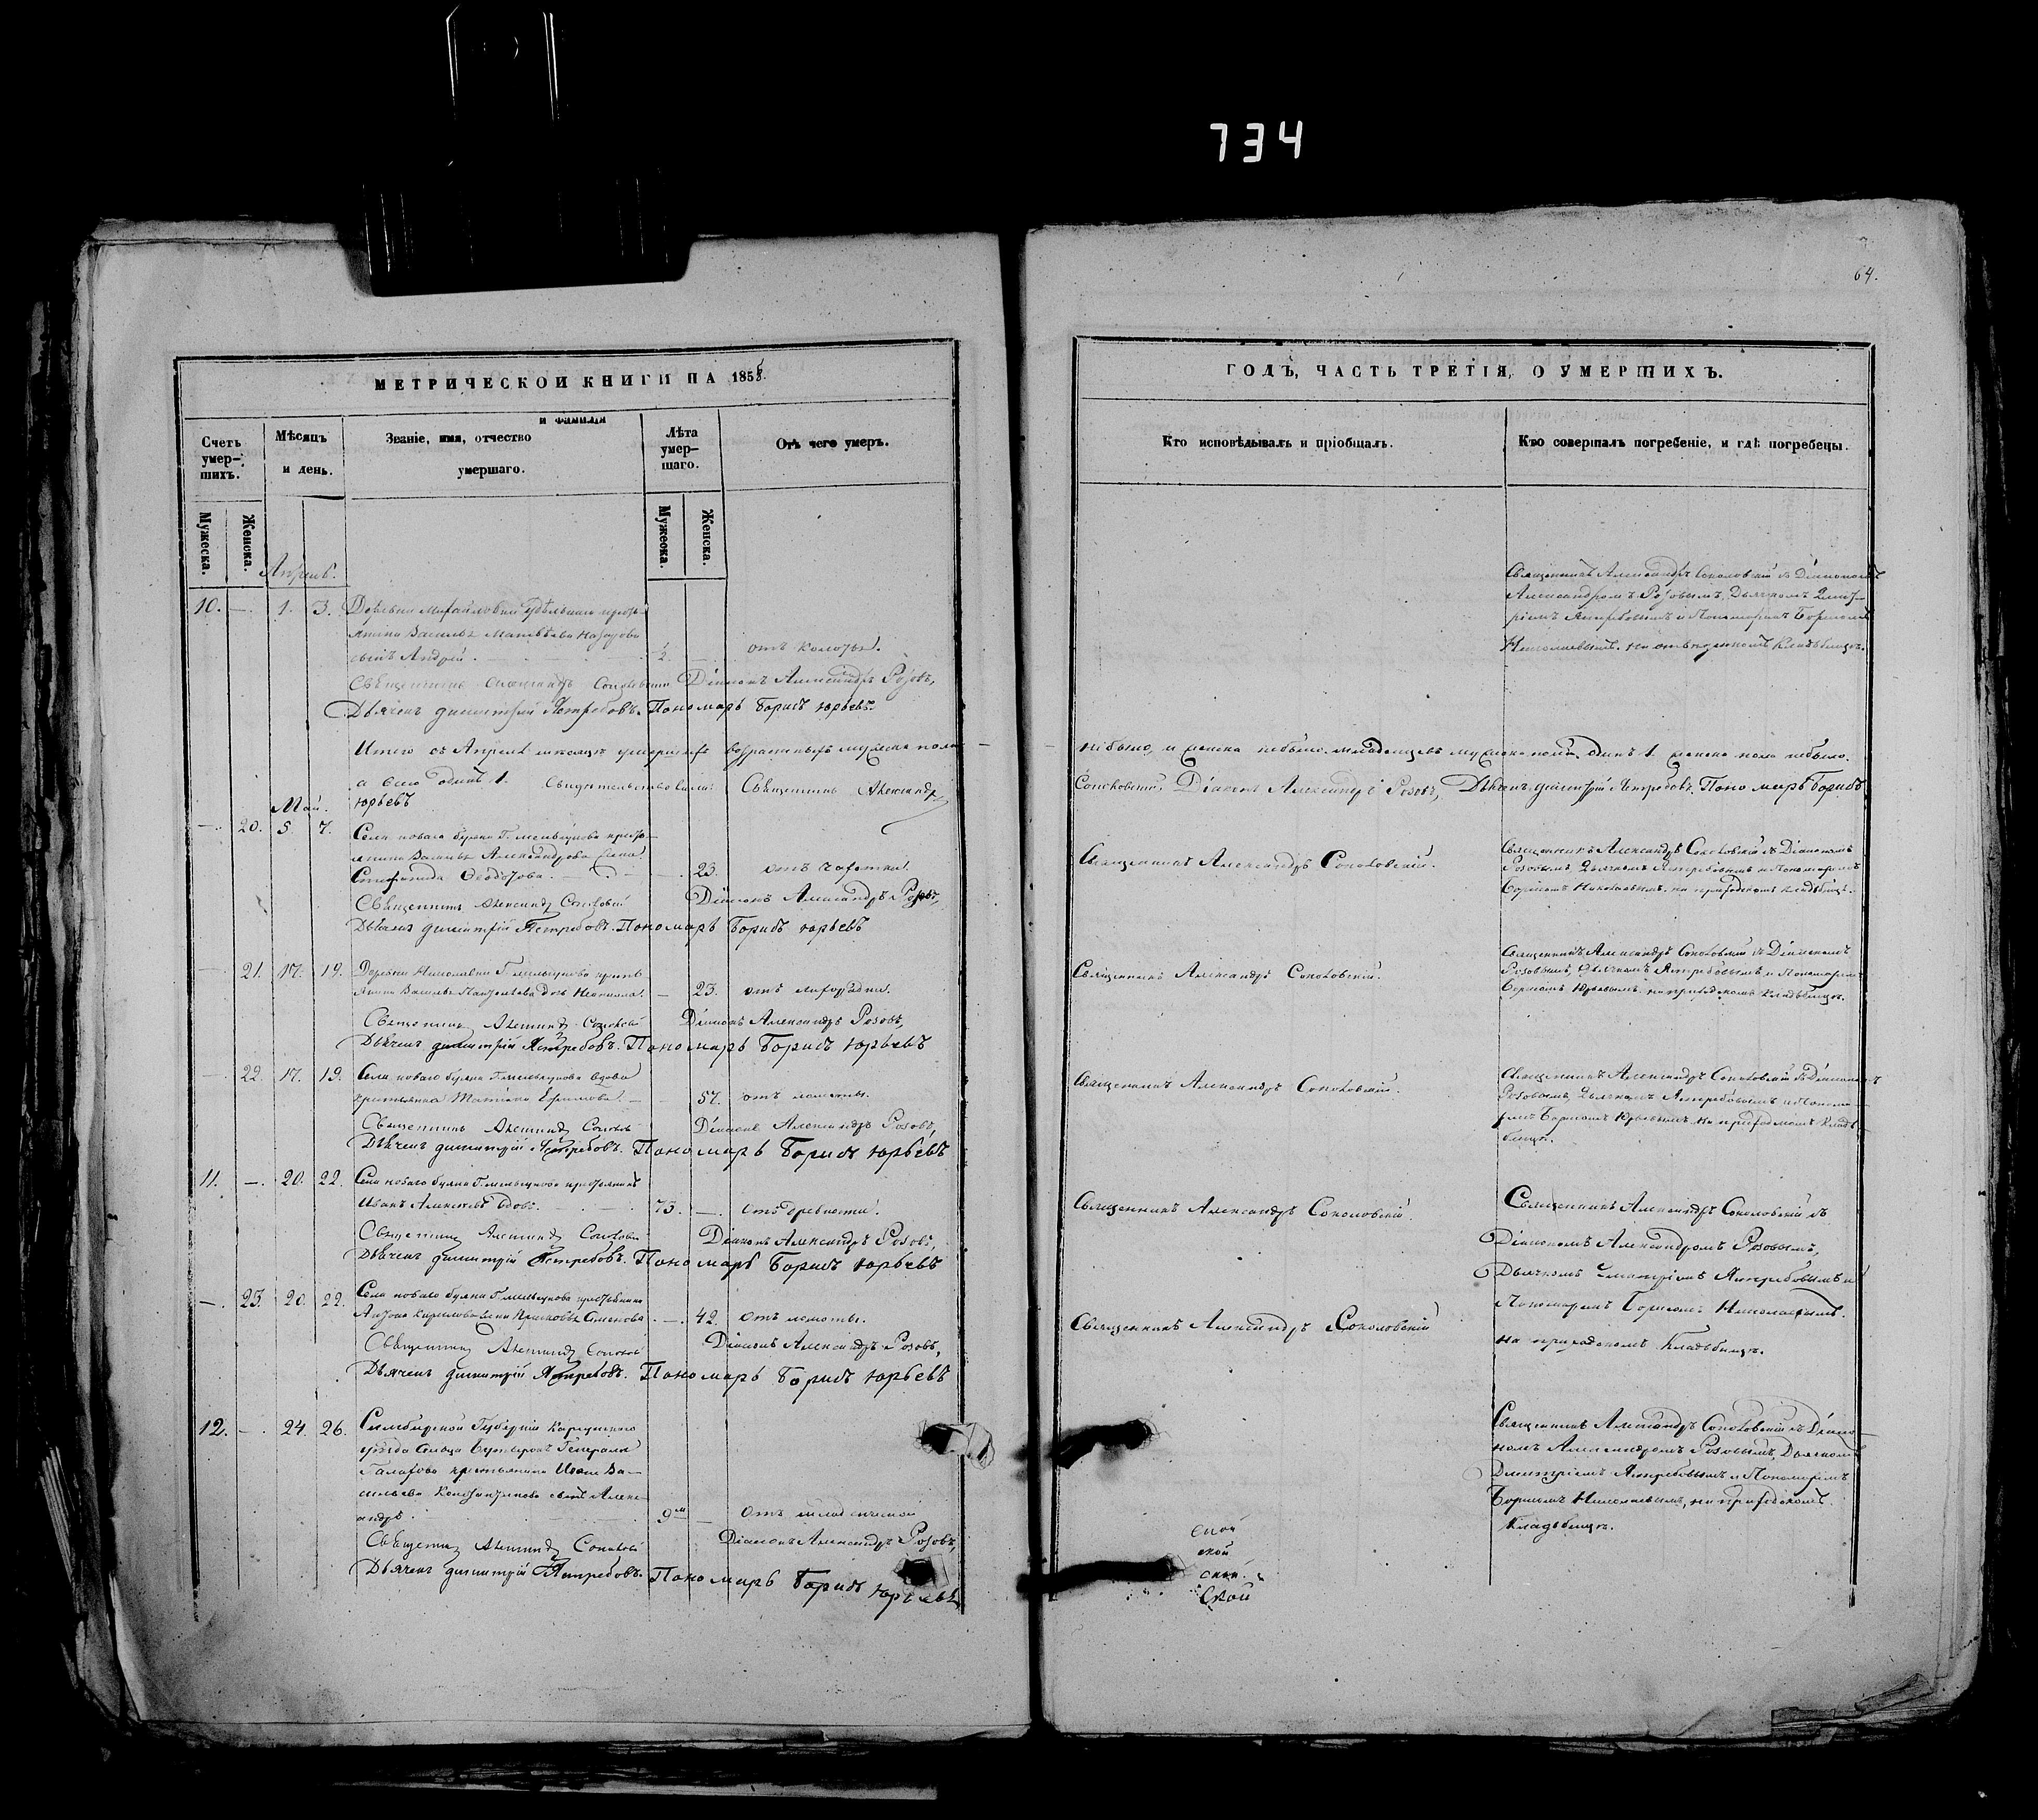 734
64.
МЕТРИЧЕСКОЙ КНИГИ НА 1856.
Счетъ умер-шихъ.
Мѣсяцъ и день.
Званіе, имя, отчество и фамилія умершаго.
Лѣта умер-шаго.
Отъ чего умеръ.
Мужеска.
Женска.
Мужеска.
Женска.
Апрѣль.
10. —. 1. 3. Деревни Михайловки Удѣльнаго кресть-
янина Василья Матвѣева
сынъ Андрей. ½. — отъ колотья.
Священникъ Александръ Соколовскій Діаконъ Александръ Розовъ,
Дьячекъ Димитрій Ястребовъ. Пономарь Борисъ Юрьевъ.
Итого въ Апрѣлѣ мѣсяцѣ умершихъ возрастныхъ мужеска пола
а всего одинъ 1. Свидѣтельствовали: Священникъ Александръ
Май. Юрьевъ
—. 20. 5. 7. Села новаго Буяна Г. Мельгунова кресть-
янина Василья Александрова жена
Степанида Ѳеодорова. — 23. отъ чахотки.
Священникъ Александръ Соколовскій Діаконъ Александръ Розовъ,
Дьячекъ Димитрій Ястребовъ. Пономарь Борисъ Юрьевъ
— 21. 17. 19. Деревни Николаевки Г. Мельгунова кресть-
янина Василья дочь — 23. отъ лихорадки.
Священникъ Александръ Соколовскій Діаконъ Александръ Розовъ,
Дьячекъ Димитрій Ястребовъ. Пономарь Борисъ Юрьевъ
— 22. 17. 19. Села новаго Буяна Г. Мельгунова вдова
крестьянка Татіана Ефимова. — 57. отъ ломоты.
Священникъ Александръ Соколовскій Діаконъ Александръ Розовъ,
Дьячекъ Димитрій Ястребовъ. Пономарь Борисъ Юрьевъ
11. —. 20. 22. Села новаго Буяна Г. Мельгунова крестьянинъ
Иванъ Алексѣевъ вдовъ. 73. —. отъ древности.
Священникъ Александръ Соколовскій Діаконъ Александръ Розовъ,
Дьячекъ Димитрій Ястребовъ. Пономарь Борисъ Юрьевъ
—. 23. 20. 22. Села новаго Буяна Г. Мельгунова крестьянина
Антона Кирилова жена Прасковья Семенова — 42. отъ ломоты.
Священникъ Александръ Соколовскій Діаконъ Александръ Розовъ,
Дьячекъ Димитрій Ястребовъ. Пономарь Борисъ Юрьевъ
12. —. 24. 26. Симбирской Губерніи Карсунскаго
уѣзда Сельца Генерала
крестьянина Ивана Ва-
сильева сынъ Алекс-
андръ. 9 м — отъ
Священникъ Александръ Соколовскій Діаконъ Александръ Розовъ,
Дьячекъ Димитрій Ястребовъ. Пономарь Борисъ Юрьевъ
ГОДЪ, ЧАСТЬ ТРЕТІЯ, О УМЕРШИХЪ.
Кто исповѣдывалъ и пріобщалъ.
Кто совершалъ погребеніе, и гдѣ погребены.
Священникъ Александръ Соколовскій съ Діакономъ
Александромъ Розовымъ, Дьячкомъ Димит-
ріемъ Ястребовымъ и Пономаремъ Борисомъ
Николаевымъ. на отведенномъ кладбищѣ.
небыло, и женска небыло. младенцевъ мужеска пола одинъ 1. женска пола небыло.
Соколовскій, Діаконъ Александръ Розовъ, Дьячекъ Димитрій Ястребовъ. Пономарь Борисъ
Священникъ Александръ Соколовскій.
Священникъ Александръ Соколовскій съ Діакономъ
Розовымъ Дьячкомъ Ястребовымъ и Пономаремъ
Борисомъ Николаевымъ. на приходскомъ кладбищѣ.
Священникъ Александръ Соколовскій.
Священникъ Александръ Соколовскій съ Діакономъ
Розовымъ, Дьячкомъ Ястребовымъ и Пономаремъ
Борисомъ Юрьевымъ. на приходскомъ кладбищѣ.
Священникъ Александръ Соколовскій.
Священникъ Александръ Соколовскій съ Діакономъ
Розовымъ, Дьячкомъ Ястребовымъ и Понома-
ремъ Борисомъ Юрьевымъ. на приходскомъ клад-
бищѣ.
Священникъ Александръ Соколовскій.
Священникъ Александръ Соколовскій съ
Діакономъ Александромъ Розовымъ,
Дьячкомъ Димитріемъ Ястребовымъ и
Пономаремъ Борисомъ Николаевымъ.
на приходскомъ Кладбищѣ.
Священникъ Александръ Соколовскій
Священникъ Александръ Соколовскій съ Діако-
номъ Александромъ Розовымъ, Дьячкомъ
Димитріемъ Ястребовымъ и Пономаремъ
Борисомъ Николаевымъ, на приходскомъ
Кладбищѣ.
ской
ской
ской
ской